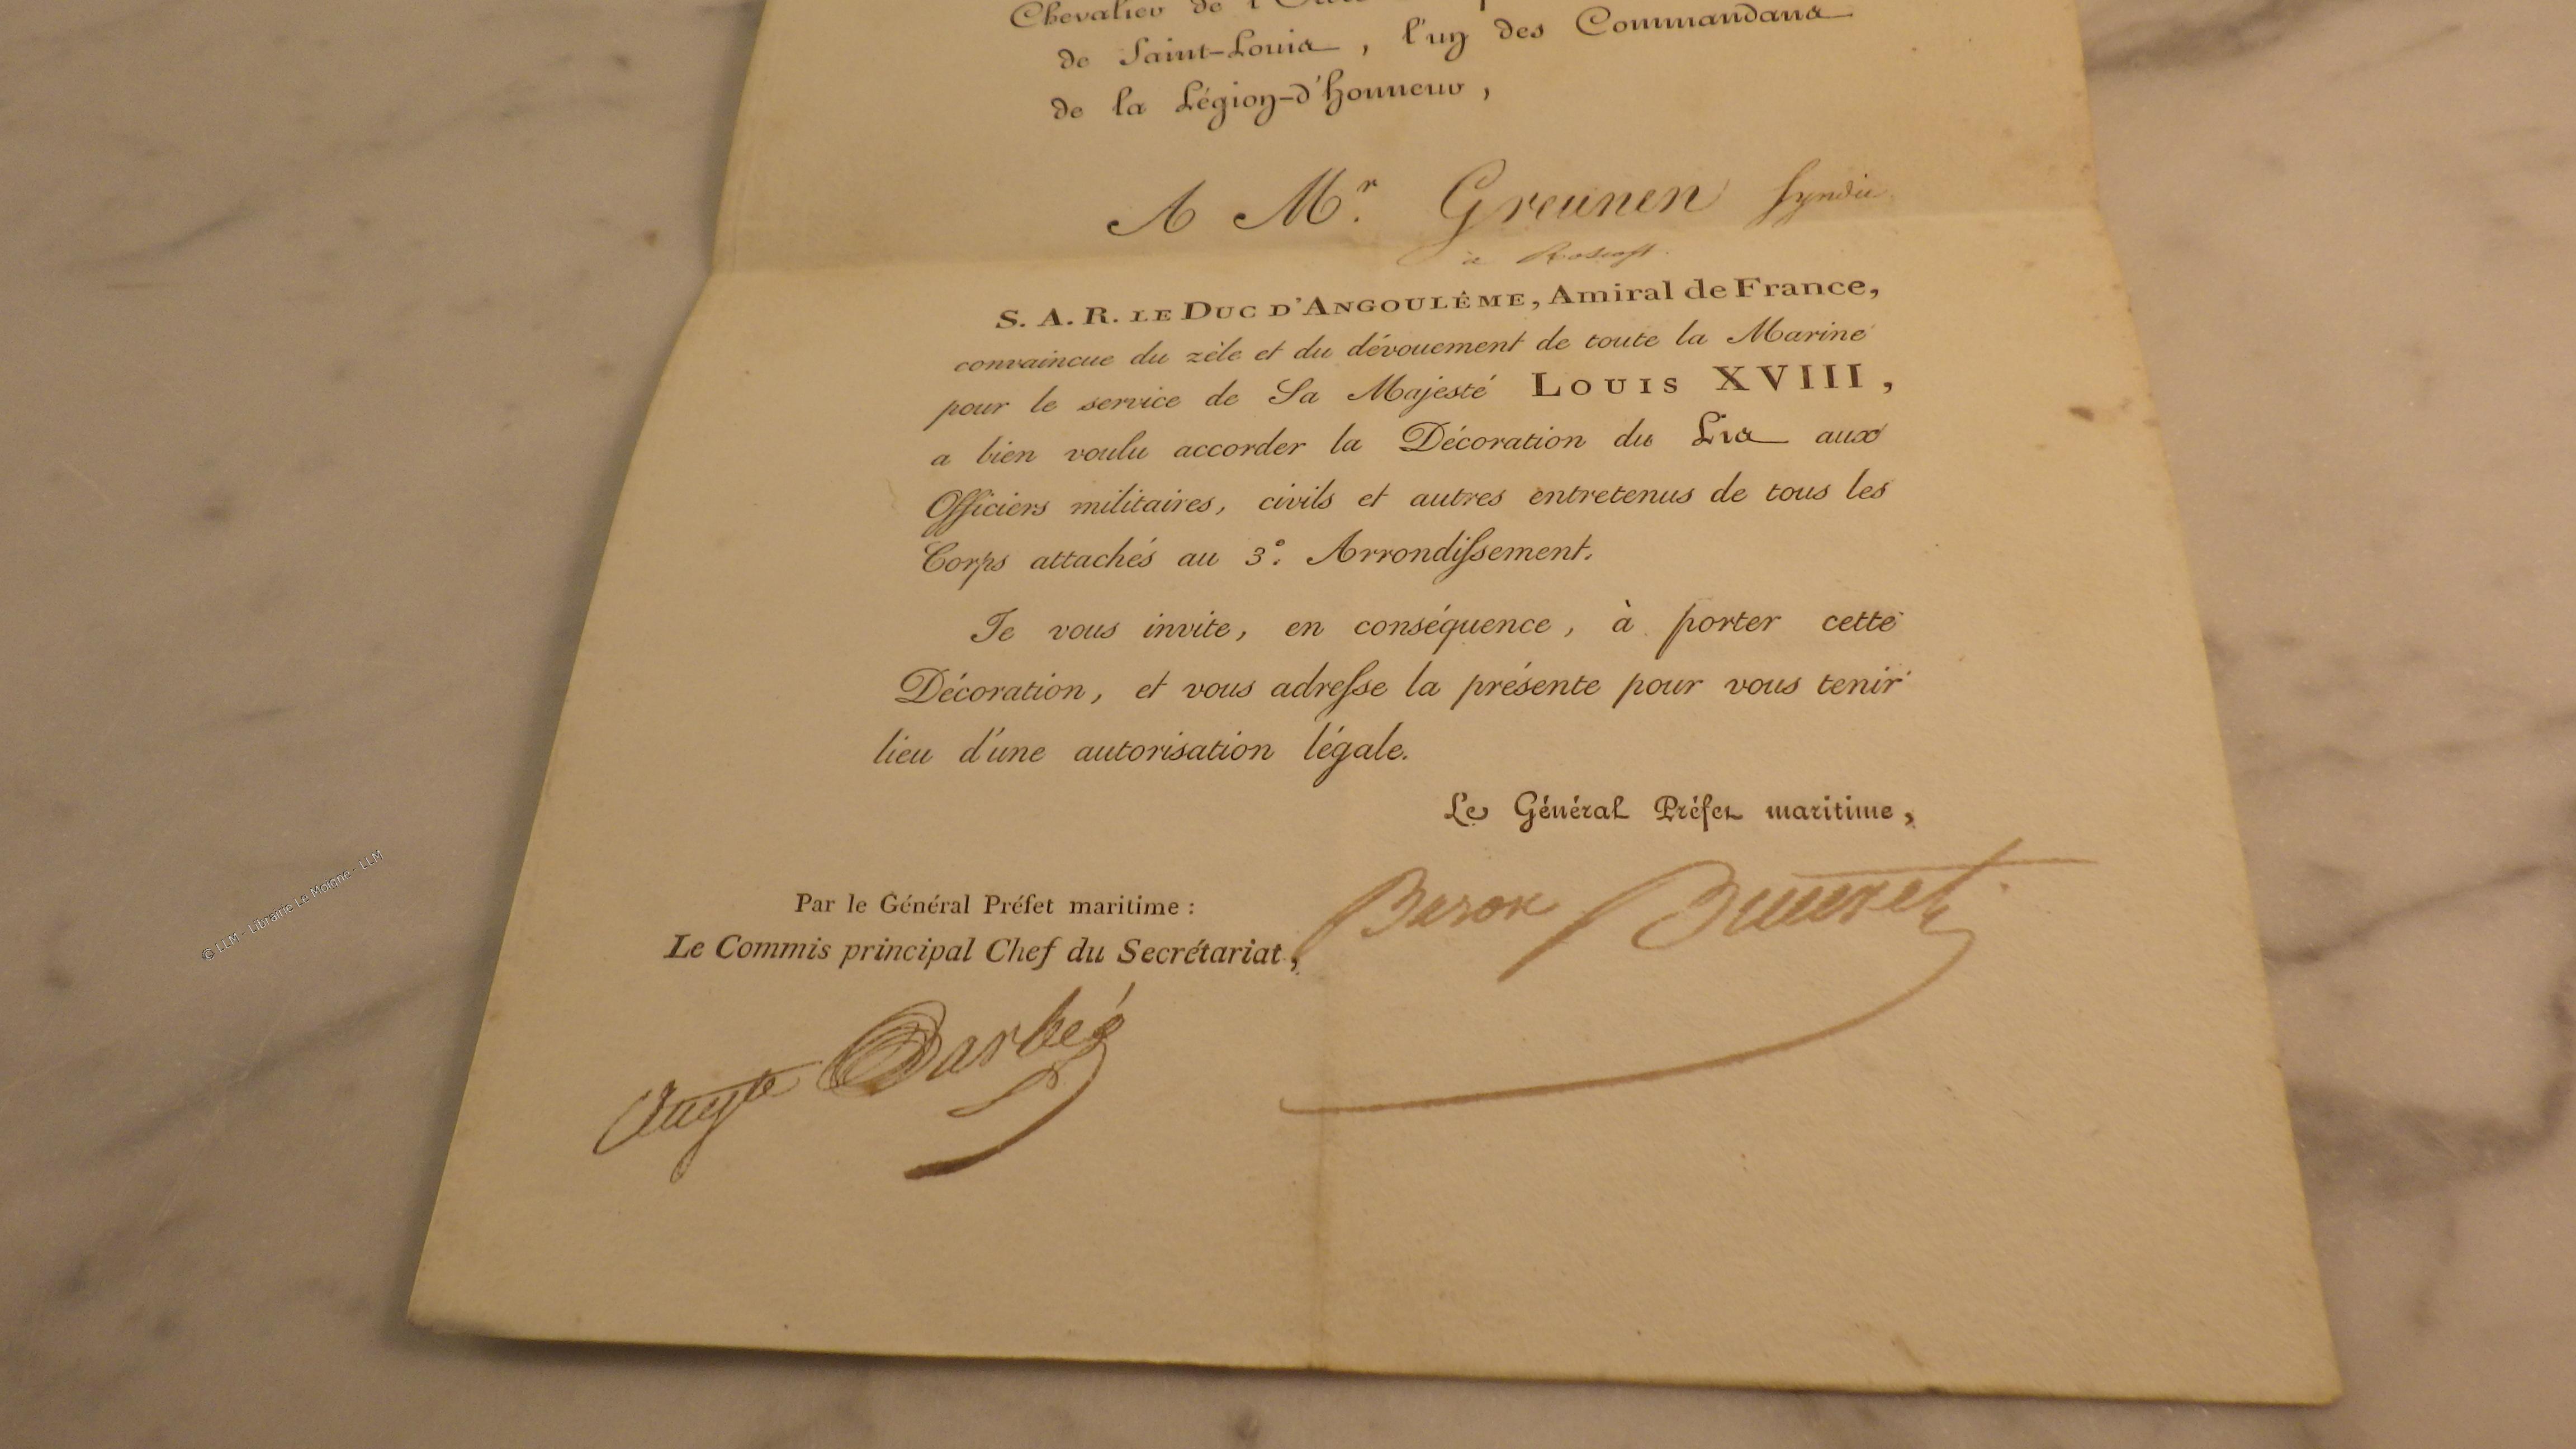 Chevalier de l'
de Saint-Louis, l'un des Commandans
de la Légion-d'honneur,
A Mr. Greunen Syndic
à Roscoff.
S. A. R. LE DUC D'ANGOULÊME, Amiral de France,
convaincue du zèle et du dévouement de toute la Marine
pour le service de Sa Majesté LOUIS XVIII,
a bien voulu accorder la Décoration du Lis aux
Officiers militaires, civils et autres entretenus de tous les
Corps attachés au 3e. Arrondissement.
Je vous invite, en conséquence, à porter cette
Décoration, et vous adresse la présente pour vous tenir
lieu d'une autorisation légale.
Le Général Préfet maritime,
Baron
Par le Général Préfet maritime :
Le Commis principal Chef du Secrétariat,
Augte
© LLM - Librairie Le Moigne - LLM